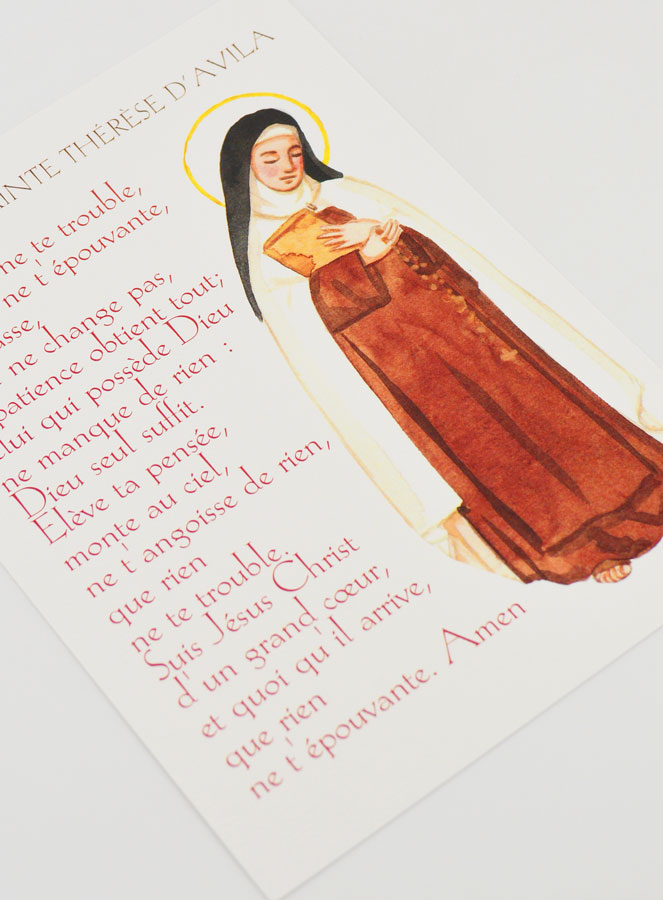 INTE THÉRÈSE D'AVILA
ne te trouble,
ne t'épouvante,
asse,
ne change pas,
patience obtient tout;
lui qui possède Dieu
ne manque de rien :
Dieu seul suffit.
Elève ta pensée,
monte au ciel,
ne t'angoisse de rien,
que rien
ne te trouble.
Suis Jésus Christ
d'un grand cœur,
et quoi qu'il arrive,
que rien
ne t'épouvante. Amen